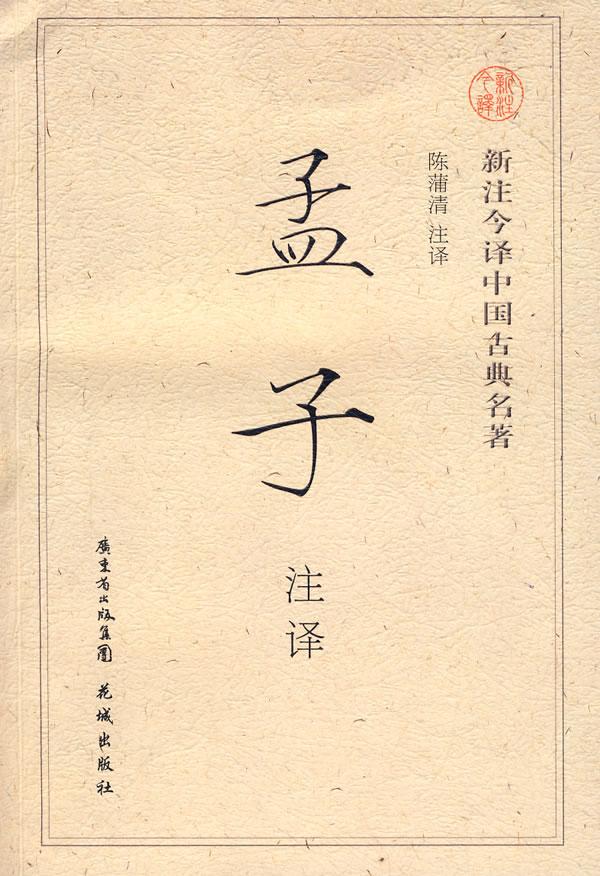 新注今譯
新注今译中国古典名著
陈蒲清 注译
孟子
注译
廣東省出版集團 花城出版社